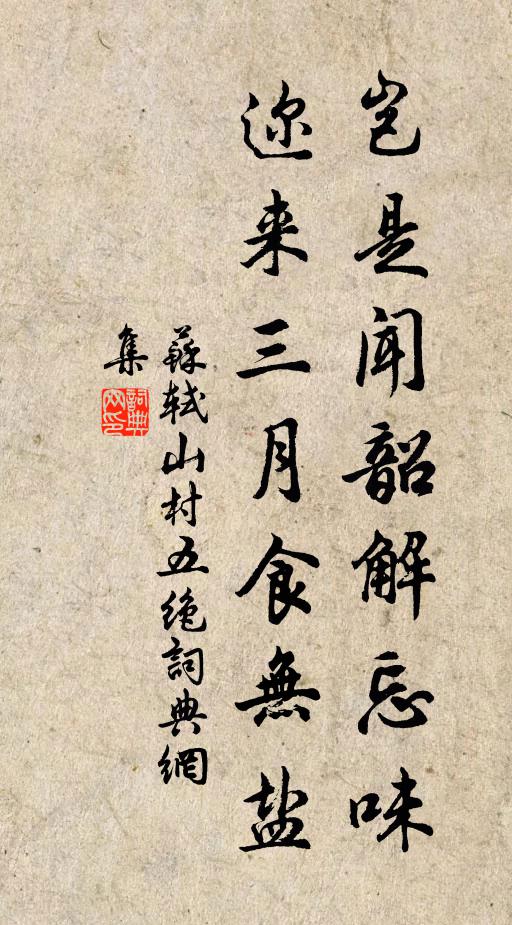 岂是闻韶解忘味
迩来三月食無盐
蘇轼山村五绝詞典網
集
詞典
网印